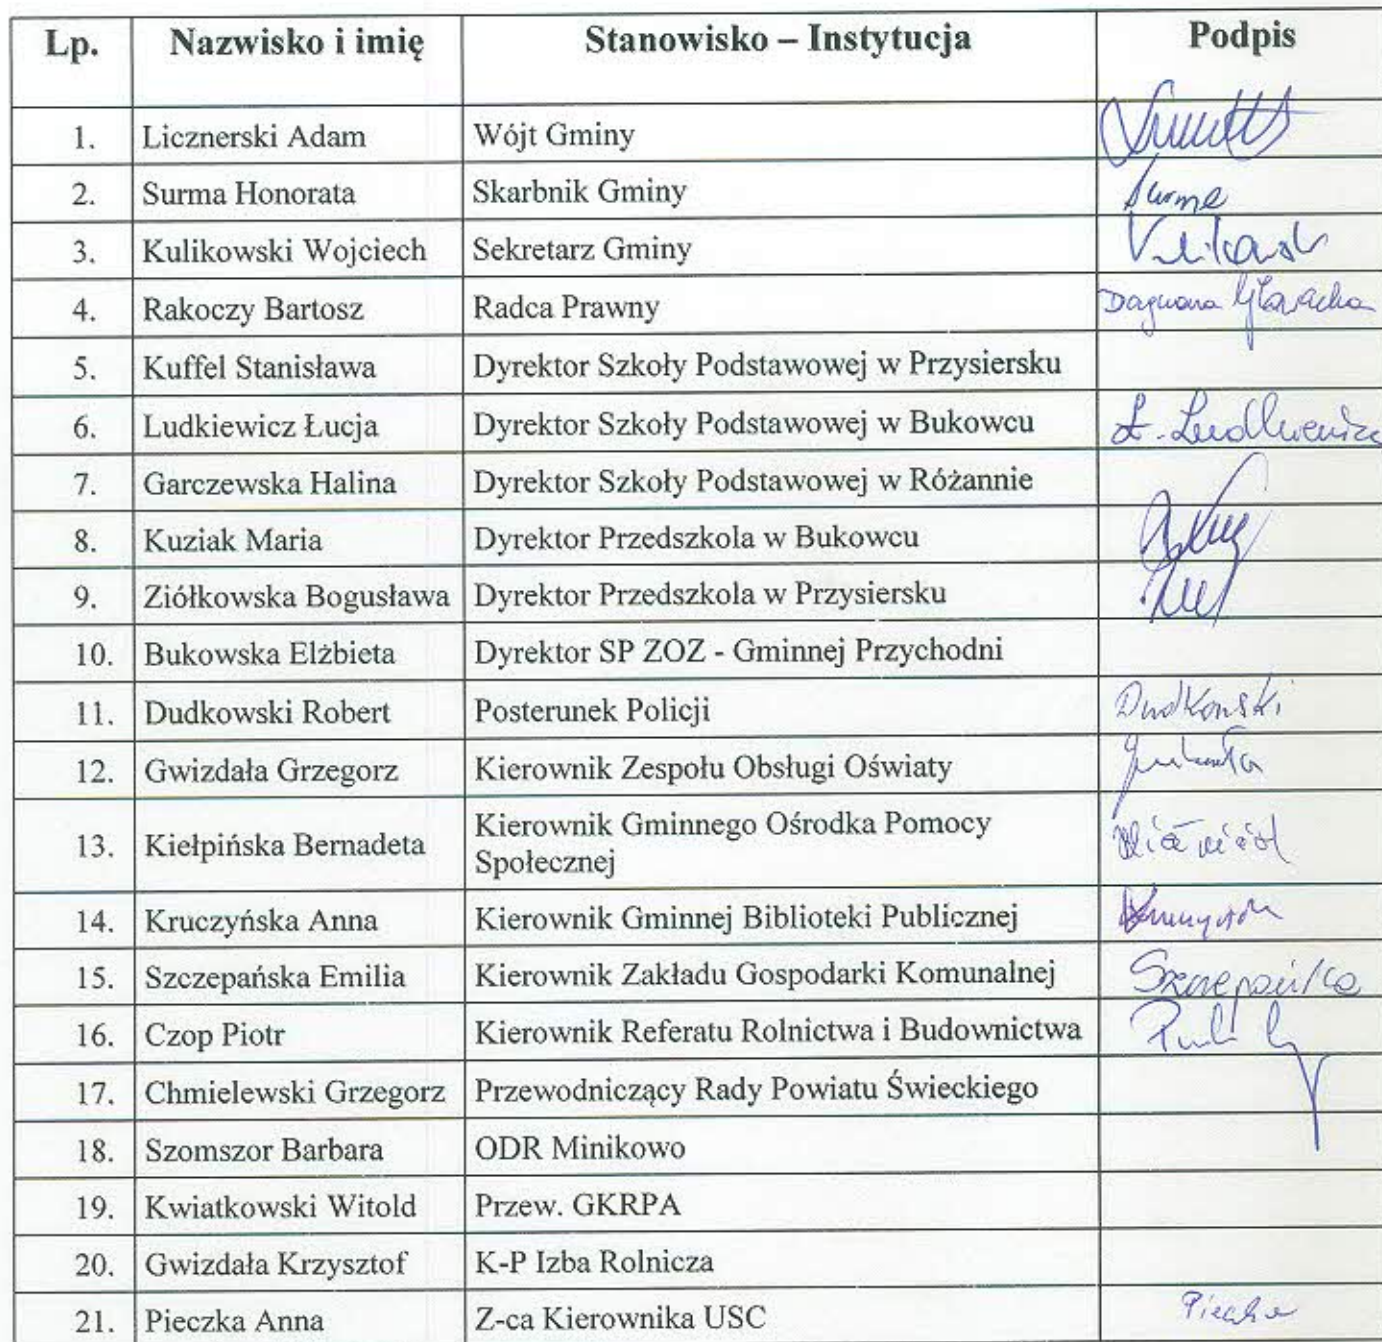 Lp. Nazwisko i imię Stanowisko – Instytucja Podpis
1. Licznerski Adam Wójt Gminy
2. Surma Honorata Skarbnik Gminy Surma
3. Kulikowski Wojciech Sekretarz Gminy
4. Rakoczy Bartosz Radca Prawny Dagmara
5. Kuffel Stanisława Dyrektor Szkoły Podstawowej w Przysiersku
6. Ludkiewicz Łucja Dyrektor Szkoły Podstawowej w Bukowcu Ł. Ludkiewicz
7. Garczewska Halina Dyrektor Szkoły Podstawowej w Różannie
8. Kuziak Maria Dyrektor Przedszkola w Bukowcu
9. Ziółkowska Bogusława Dyrektor Przedszkola w Przysiersku
10. Bukowska Elżbieta Dyrektor SP ZOZ - Gminnej Przychodni
11. Dudkowski Robert Posterunek Policji Dudkowski
12. Gwizdała Grzegorz Kierownik Zespołu Obsługi Oświaty
13. Kiełpińska Bernadeta Kierownik Gminnego Ośrodka Pomocy
Społecznej
14. Kruczyńska Anna Kierownik Gminnej Biblioteki Publicznej
15. Szczepańska Emilia Kierownik Zakładu Gospodarki Komunalnej Szczepańska
16. Czop Piotr Kierownik Referatu Rolnictwa i Budownictwa
17. Chmielewski Grzegorz Przewodniczący Rady Powiatu Świeckiego
18. Szomszor Barbara ODR Minikowo
19. Kwiatkowski Witold Przew. GKRPA
20. Gwizdała Krzysztof K-P Izba Rolnicza
21. Pieczka Anna Z-ca Kierownika USC Pieczka